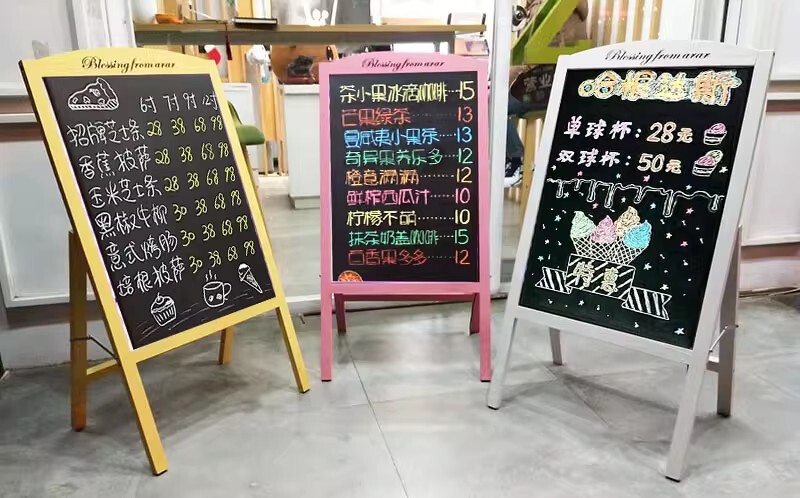 Blessing from arar
6寸 7寸 9寸 12寸
招牌芝士条 28 38 68 98
香蕉披萨 28 38 68 98
玉米芝士条 28 38 68 98
黑椒牛柳 30 38 68 98
意式烤肠 30 38 68 98
培根披萨 30 38 68 98
Blessing from arar
茶小果冰滴咖啡 15
芒果绿茶 13
夏威夷小果茶 13
奇异果养乐多 12
橙意满满 12
鲜榨西瓜汁 10
柠檬不萌 10
抹茶奶盖咖啡 15
百香果多多 12
Blessing from arar
哈根达斯
单球杯:28元
双球杯:50元
特惠
营业